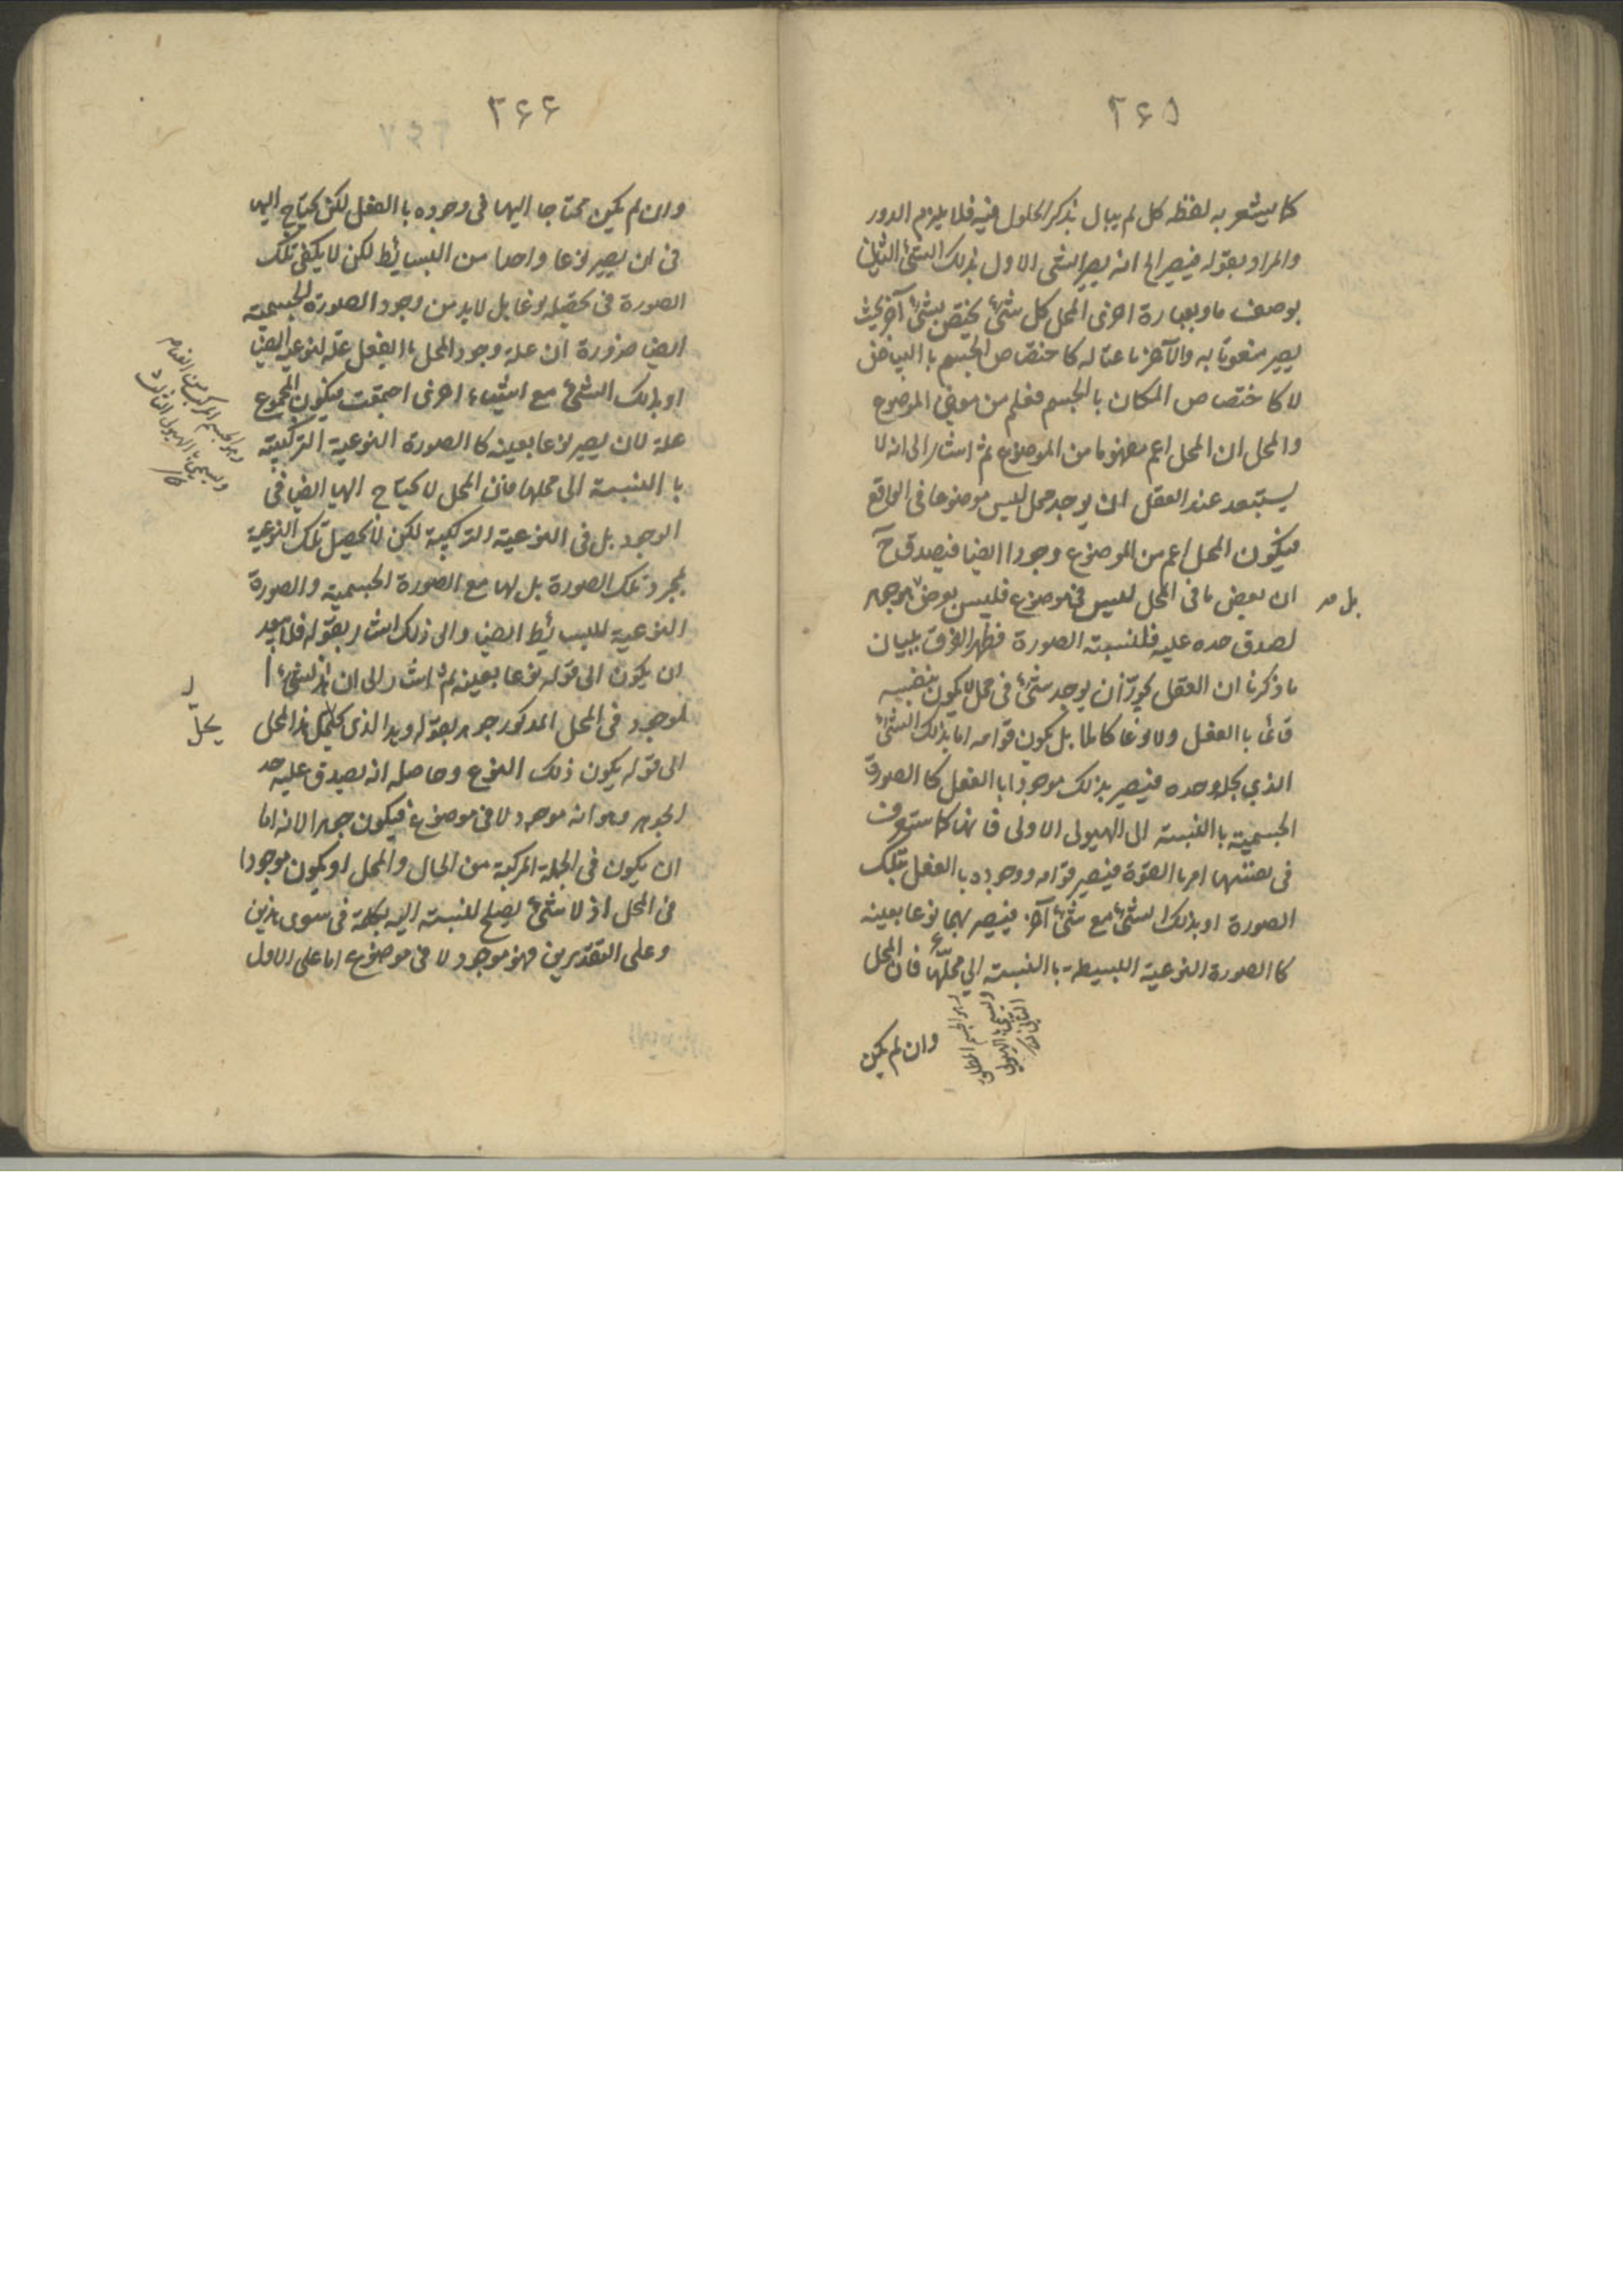 ٢٦٥
كما يشعر به لفظه كل لم يبال بذكر الحلول فيه فلا يلزم الدور
والمراد بقوله فيصير الخ انه يصير الشئ الاول بذلك الشئ الثاني
بوصف ما وبعبارة اخرى المحل كل شئ يختص بشئ آخر بحيث
يصير منعوتا به والآخر ناعتا له كاختصاص الجسم بالبياض
لا كاختصاص المكان بالجسم فعلم من معنى الموضوع
والمحل ان المحل اعم مفهوما من الموضوع ثم اشار الى انه لا
يستبعد عند العقل ان يوجد محل ليس موضوعا في الواقع
فيكون المحل اعم من الموضوع وجودا ايضا فيصدق ح
ان بعض ما في المحل ليس في موضوع فليس بعرض جوهر
بل هو
لصدق حده عليه فلنسبته الصورة فظهر الفرق ببيان
ما ذكرنا ان العقل يجوّز ان يوجد شئ في محل لا يكون بنفسه
قائما بالفعل ولا نوعا كاملا بل يكون قوامه اما بذلك الشئ
الذي يحل وحده فيصير بذلك موجودا بالفعل كالصورة
الجسمية بالنسبة الى الهيولى الاولى فانها كما ستعرف
في نفسها امر بالقوة فيصير قوامه ووجوده بالفعل بتلك
الصورة او بذلك الشئ مع شئ آخر فيصير بهما نوعا بعينه
كالصورة النوعية البسيطة بالنسبة الى محلها فان المحل
وهو الجسم المطلق
ويسمى بالهيولى
الثانية
وان لم يكن
٢٦٦
وان لم يكن محتاجا اليها في وجوده بالفعل لكن يحتاج اليها
في ان يصير نوعا واحدا من البسائط لكن لا يكفي تلك
الصورة في تحصيله نوعا بل لا بد من وجود الصورة الجسمية
ايضا ضرورة ان علة وجود المحل بالفعل علة لنوعيه ايضا
او بذلك الشئ مع اشياء اخرى اجتمعت فيكون المجموع
علة لان يصير نوعا بعينه كالصورة النوعية التركيبية
بالنسبة الى محلها فان المحل لا يحتاج اليها ايضا في
الوجود بل في النوعية التركيبية لكن لا تحصيل تلك النوعية
بمجرد تلك الصورة بل لها مع الصورة الجسمية والصورة
النوعية للبسائط ايضا والى ذلك اشار بقوله فلا يبعد
ان يكون الى قوله نوعا بعينه ثم اشار الى ان هذ الشئ ا
لموجود في المحل المذكور جوهر بقوله وهذا الذي يحل هذا المحل
الى قوله يكون ذلك النوع وحاصله انه يصدق عليه حد
الجوهر وهو انه موجود لا في موضوع فيكون جوهرا لانه اما
ان يكون في الجملة المركبة من الحال والمحل او يكون موجودا
في المحل اذ لا شئ يصلح للنسبة اليه بكلمة في سوى هذين
وعلى التقديرين فهو موجود لا في موضوع اما على الاول
وهو الجسم المركب من العناصر
ويسمى بالهيولى الثالثة
يحل